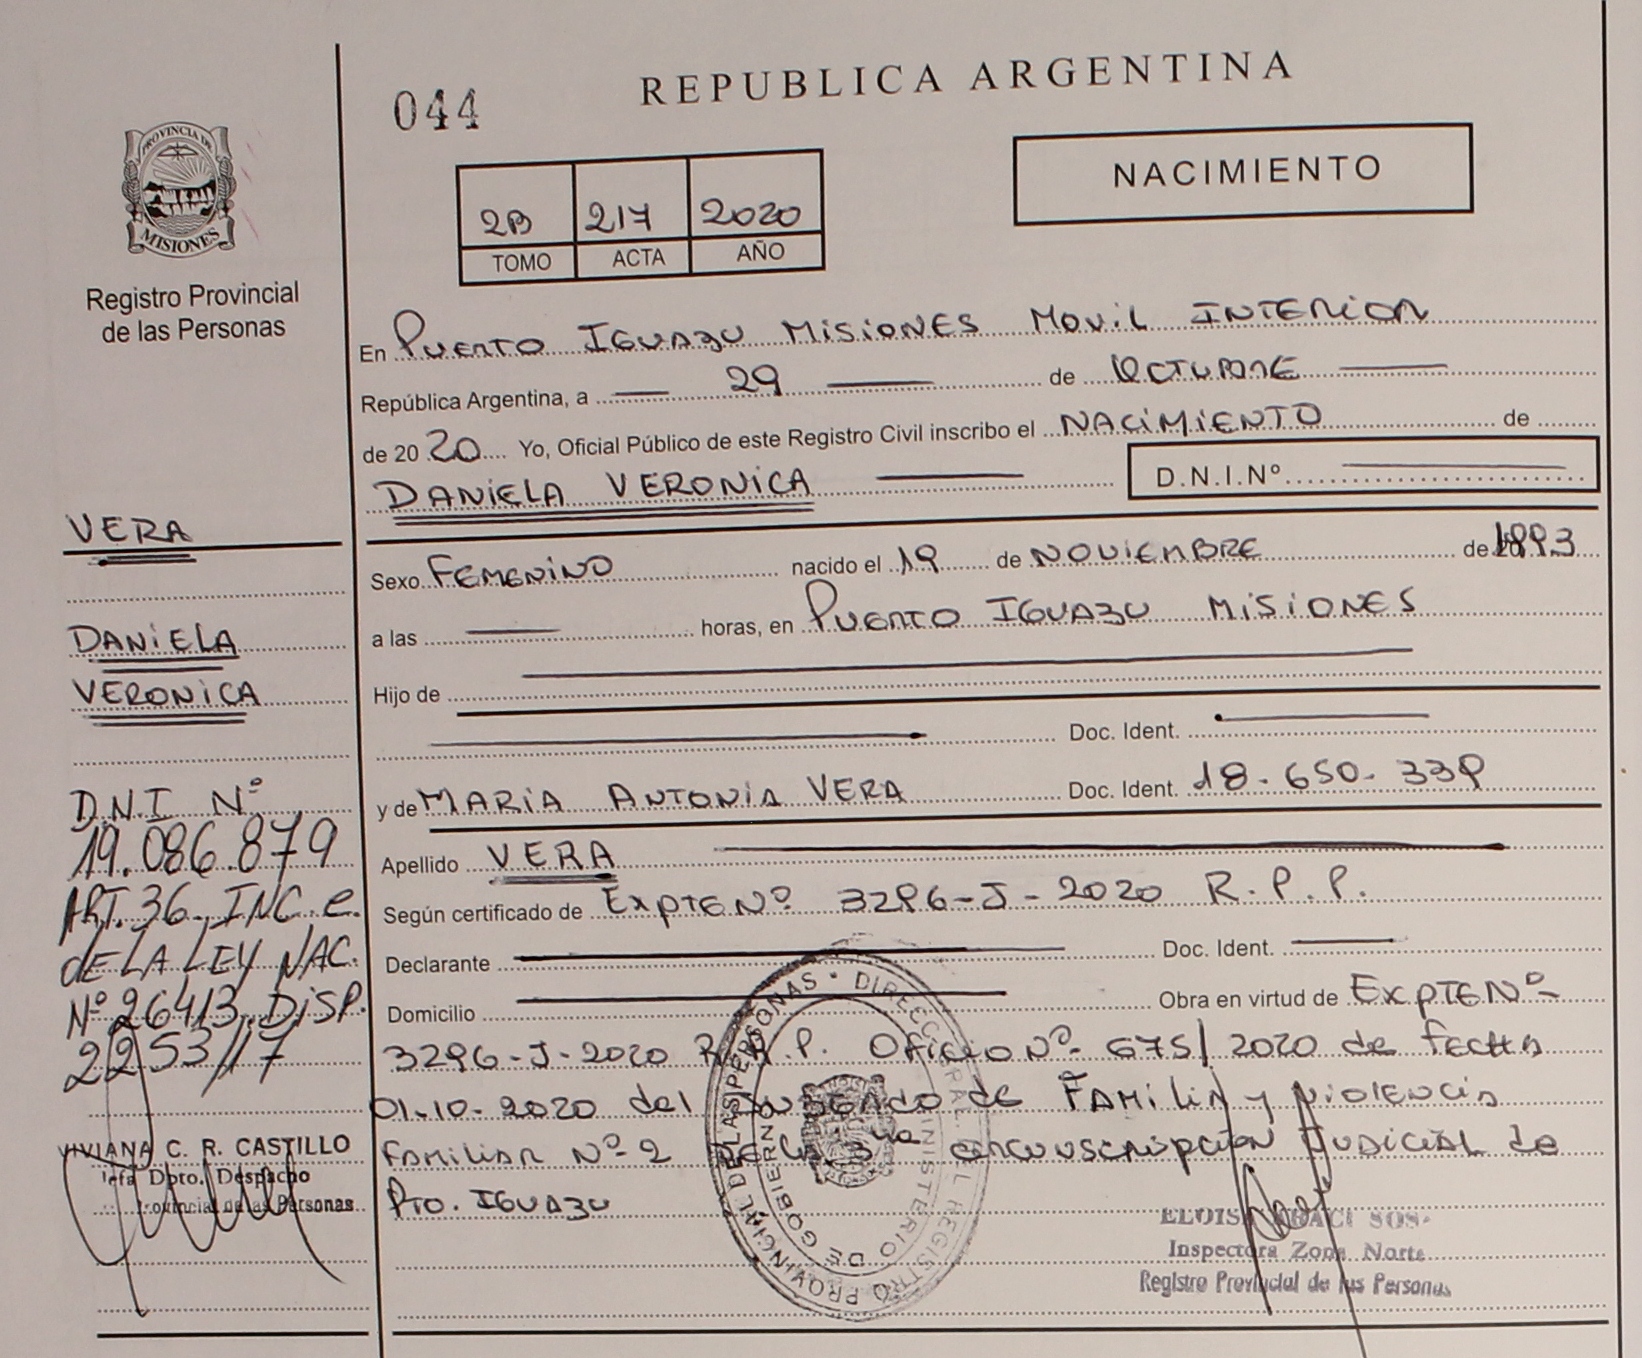 REPUBLICA ARGENTINA
044
NACIMIENTO
PROVINCIA DE
MISIONES
Registro Provincial
de las Personas
2B 217 2020
TOMO ACTA AÑO
En PUERTO IGUAZU MISIONES MOVIL INTERIOR
República Argentina, a 29 de OCTUBRE
de 2020 Yo, Oficial Público de este Registro Civil inscribo el NACIMIENTO de
DANIELA VERONICA D.N.I.Nº
Sexo FEMENINO nacido el 19 de NOVIEMBRE de 1993
a las horas, en PUERTO IGUAZU MISIONES
Hijo de
Doc. Ident.
y de MARIA ANTONIA VERA Doc. Ident. 18-650-339
Apellido VERA
Según certificado de EXPTE Nº 3296-J-2020 R.P.P.
Declarante Doc. Ident.
Domicilio Obra en virtud de EXPTE Nº
3296-J-2020 R.P.P. OFICIO Nº 675/2020 de FECHA
01-10-2020 del JUZGADO de FAMILIA y VIOLENCIA
FAMILIAR Nº 2 DE LA 3 CIRCUNSCRIPCION JUDICIAL de
Pto. IGUAZU
VERA
DANIELA
VERONICA
D.N.I Nº
19.086.879
ART.36, INC.e.
dE LA LEY NAC.
Nº 26413, DiSP.
2253/17
VIVIANA C. R. CASTILLO
Jefa Dpto. Despacho
Provincial de las Personas
SOS-
Inspectora Zona Norte
Registro Provincial de las Personas
REGISTRO PROVINCIAL DE LAS PERSONAS
MINISTERIO DE GOBIERNO